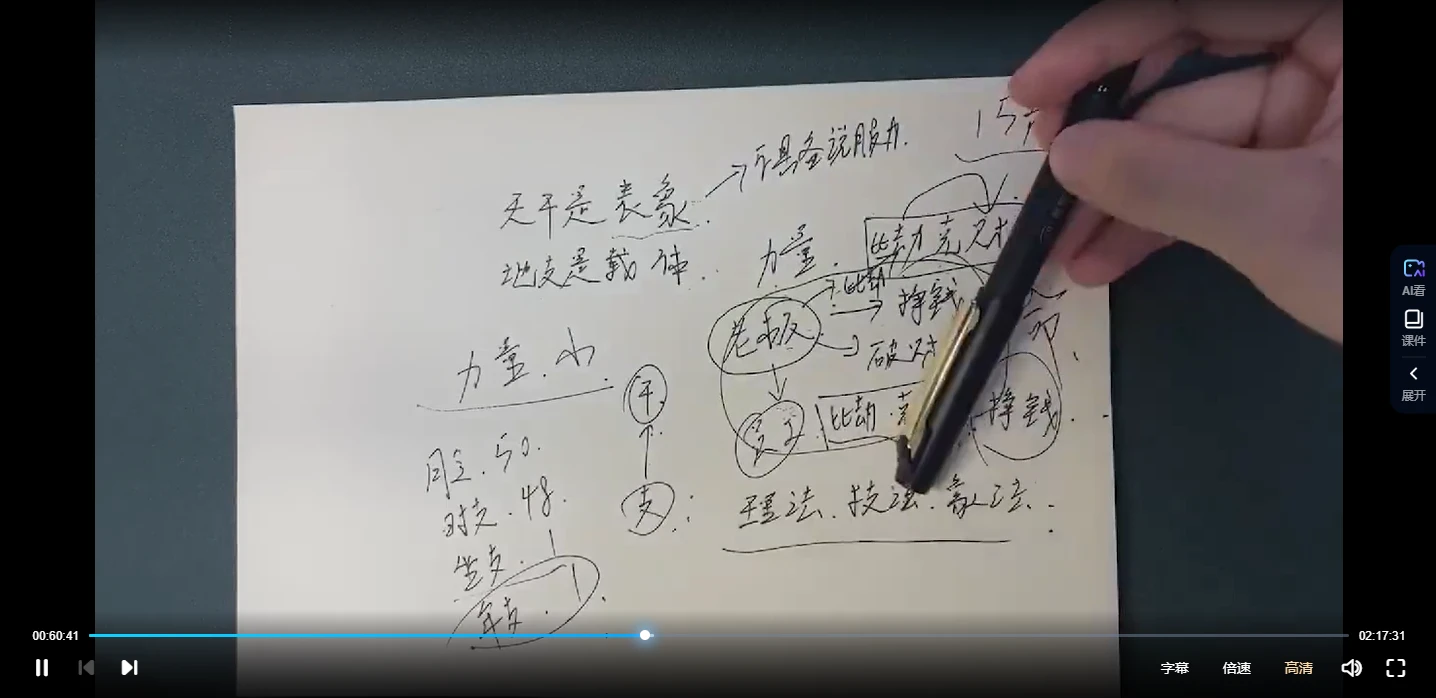 天干是表象 → 不具备说服力.
地支是载体..
15
力量.
比劫克财
比劫
老板
挣钱
破财
印
力量.
干
支
员工
比劫.
挣钱.
月令.50.
时支.48.
坐支.1
年支.1
理法.技法.象法.
AI看
课件
展开
00:60:41
02:17:31
字幕
倍速
高清